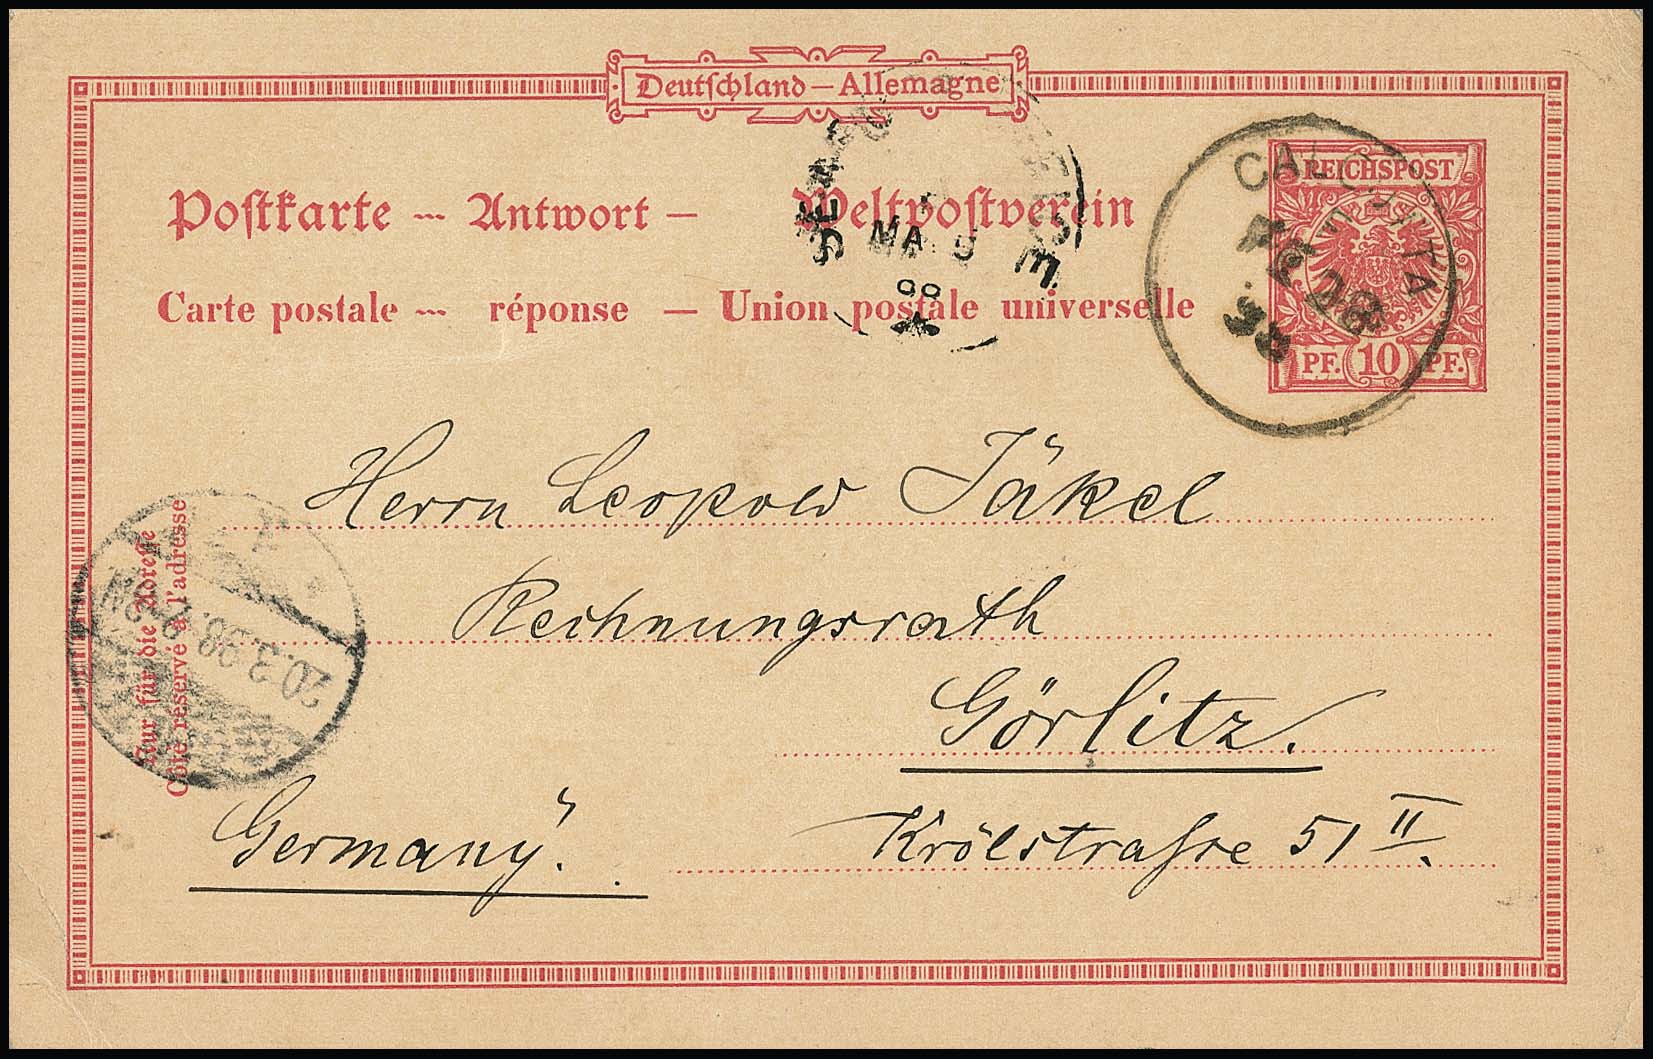 Deutschland – Allemagne
Postkarte — Antwort — Weltpostverein
Carte postale — réponse — Union postale universelle
REICHSPOST
PF. 10 PF.
CALCUTTA
SEA POST OFFICE
MA 5
98
Nur für die Adresse
Côté réservé à l'adresse
20.3.98.
Herrn Leopold Jäkel
Rechnungsrath
Görlitz.
Krölstraſse 51 II.
Germany.